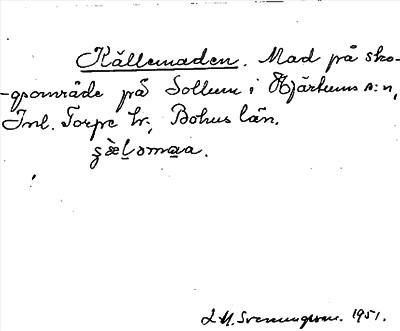 Källemaden. Mad på sko-
-gsområde på Sollum i Hjärtums s:n,
Inl. Torpe hr, Bohus län.
L.M. Svenungsson. 1951.